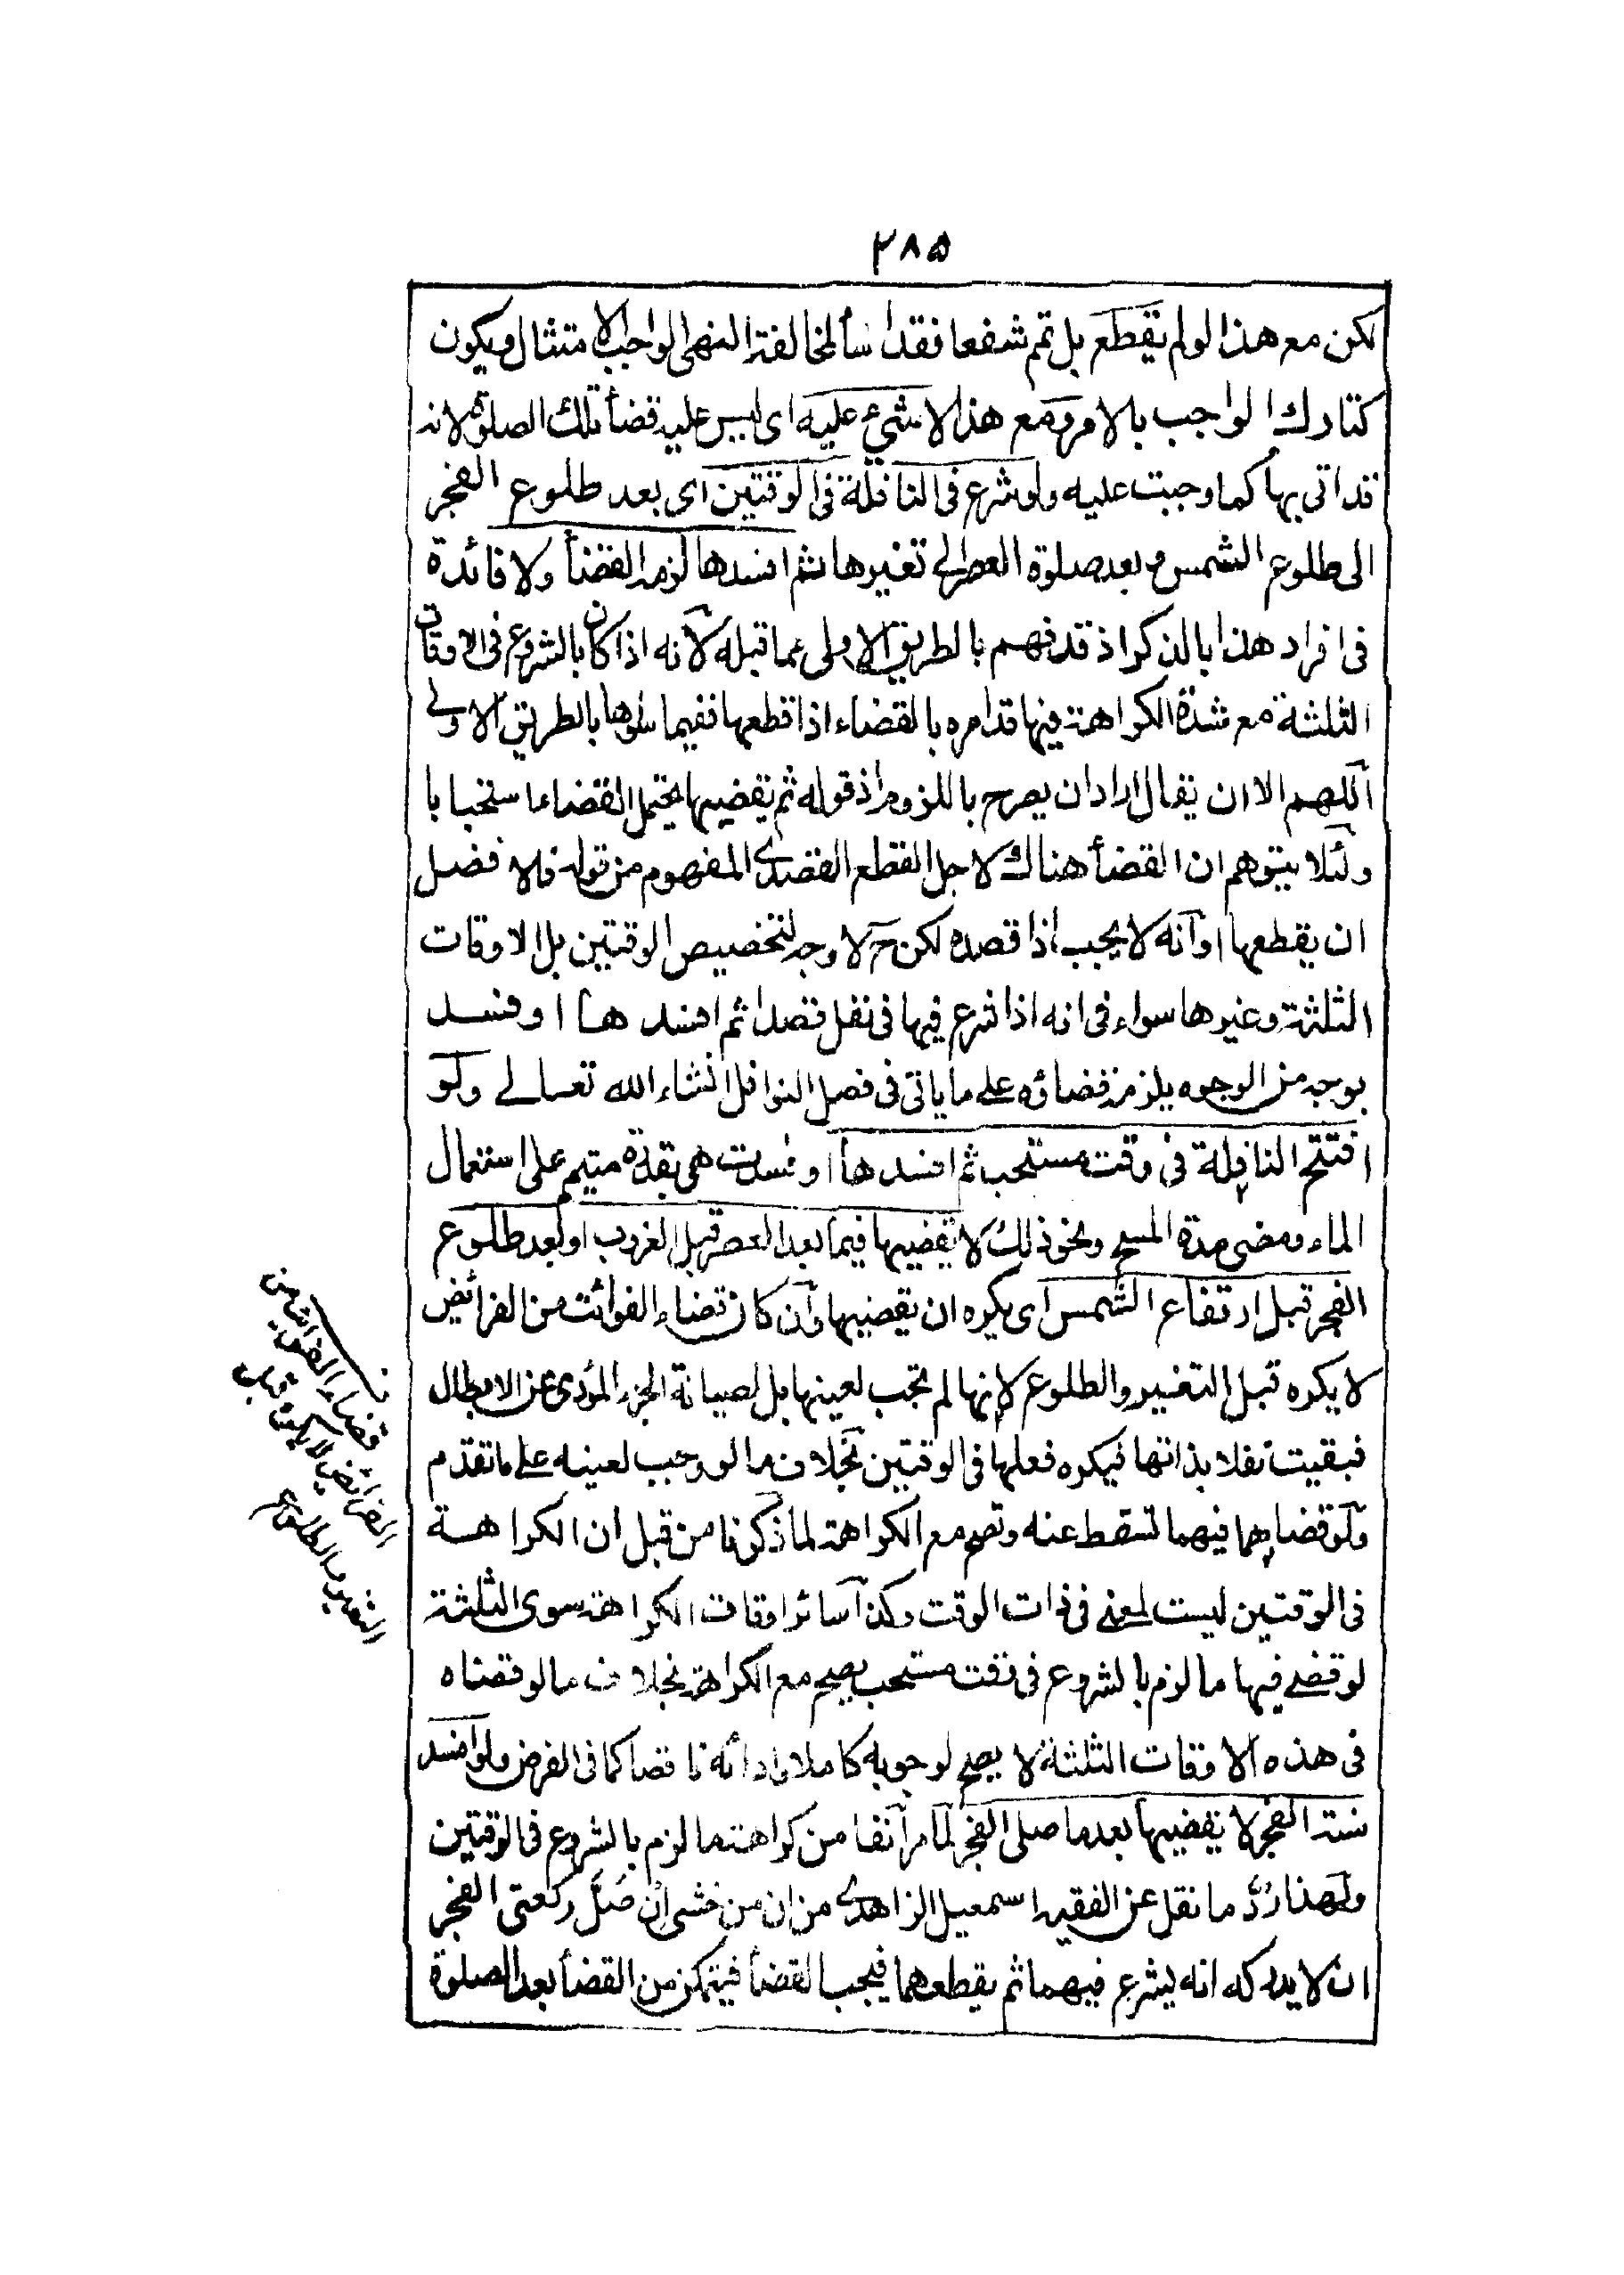 ٢٨٥
لكن مع هذا لو لم يقطع بل تم شفعا فقد اساء لمخالفة النهى الواجب الامتثال ويكون
كتارك الواجب بالامر ومع هذا لا شئ عليه اى ليس عليه قضاء تلك الصلوة لانه
قد اتى بها كما وجبت عليه ولو شرع فى النافلة فى الوقتين اى بعد طلوع الفجر
الى طلوع الشمس وبعد صلوة العصر الى تغيرها ثم افسدها لزمه القضاء ولا فائدة
فى افراد هذا بالذكر اذ قد فهم بالطريق الاولى عما قبله لانه اذا كان بالشروع فى الاوقات
الثلثة مع شدة الكراهة فيها قد امره بالقضاء اذا قطعها ففيما سواها بالطريق الاولى
اللهم الا ان يقال اراد ان يصرح باللزوم اذ قوله ثم يقضيها يحتمل القضاء استحبابا
ولئلا يتوهم ان القضاء هناك لاجل القطع القصدى المفهوم من قوله فالافضل
ان يقطعها او انه لا يجب اذا قصده لكن ح لا وجه لتخصيص الوقتين بل الاوقات
الثلثة وغيرها سواء فى انه اذا شرع فيها فى نفل قصدا ثم افسدها او فسد
بوجه من الوجوه يلزمه قضاؤه على ما ياتى فى فصل النوافل انشاء الله تعالى ولو
افتتح النافلة فى وقت مستحب ثم افسدها او فسدت هى بقدرة متيمم على استعمال
الماء ومضى مدة المسح ونحو ذلك لا يقضيها فيما بعد العصر قبل الغروب او بعد طلوع
الفجر قبل ارتفاع الشمس اى يكره ان يقضيها وان كان قضاء الفوائت من الفرائض
لا يكره قبل التغيير والطلوع لانها لم تجب لعينها بل لصيانة الجزء المؤدى عن الابطال
فبقيت نفلا بذاتها فيكره فعلها فى الوقتين بخلاف ما لو وجب لعينه على ما تقدم
ولو قضاها فيهما تسقط عنه وتصح مع الكراهة لما ذكرنا من قبل ان الكراهة
فى الوقتين ليست لمعنى فى ذات الوقت وكذا سائر اوقات الكراهة سوى الثلثة
لو قضى فيها ما لزم بالشروع فى وقت مستحب يصح مع الكراهة بخلاف ما لو قضاه
فى هذه الاوقات الثلثة لا يصح لوجوبه كاملا وادائه ناقصا كما فى الفرض ولو افسد
سنة الفجر لا يقضيها بعد ما صلى الفجر لما مر آنفا من كراهته ما لزم بالشروع فى الوقتين
ولهذا رُدَّ ما نقل عن الفقيه اسمعيل الزاهدى من ان من خشى ان صَلَّ ركعتى الفجر
ان لا يدركه انه يشرع فيهما ثم يقطعهما فيجب القضاء فيتمكن من القضاء بعد الصلوة
قضاء الفوائت من
الفرائض لا يكره قبل
التغير والطلوع